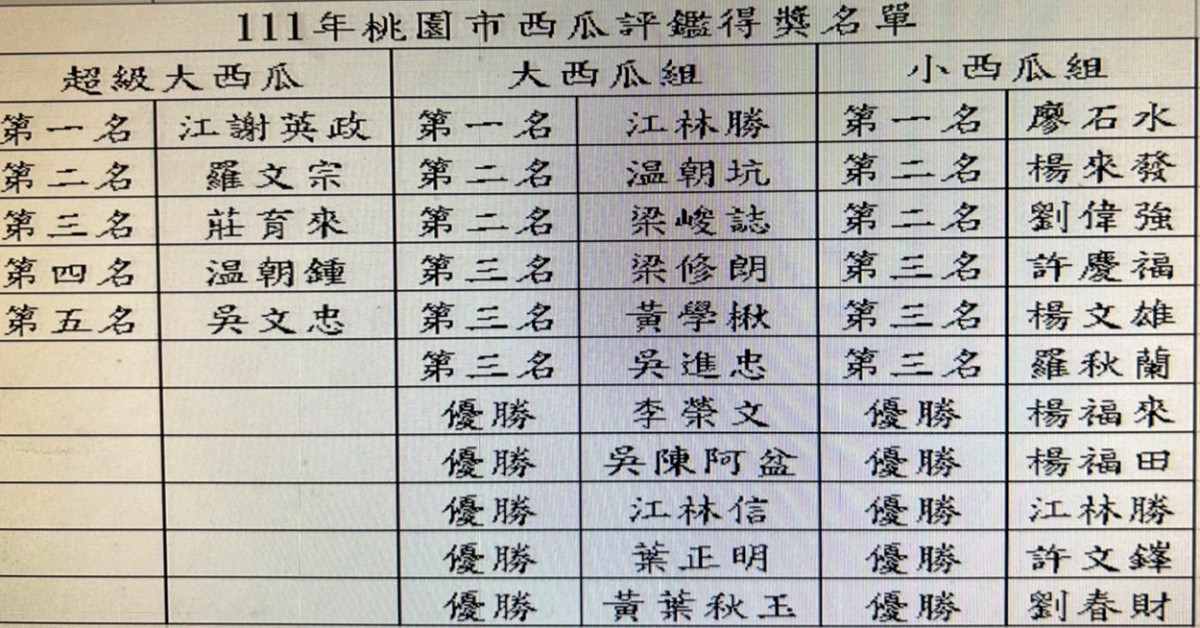 111年桃園市西瓜評鑑得獎名單
超級大西瓜 大西瓜組 小西瓜組
第一名 江謝英政 第一名 江林勝 第一名 廖石水
第二名 羅文宗 第二名 温朝坑 第二名 楊來發
第三名 莊育來 第二名 梁峻誌 第二名 劉偉強
第四名 温朝鍾 第三名 梁修朗 第三名 許慶福
第五名 吳文忠 第三名 黃學楸 第三名 楊文雄
第三名 吳進忠 第三名 羅秋蘭
優勝 李榮文 優勝 楊福來
優勝 吳陳阿盆 優勝 楊福田
優勝 江林信 優勝 江林勝
優勝 葉正明 優勝 許文鐸
優勝 黃葉秋玉 優勝 劉春財